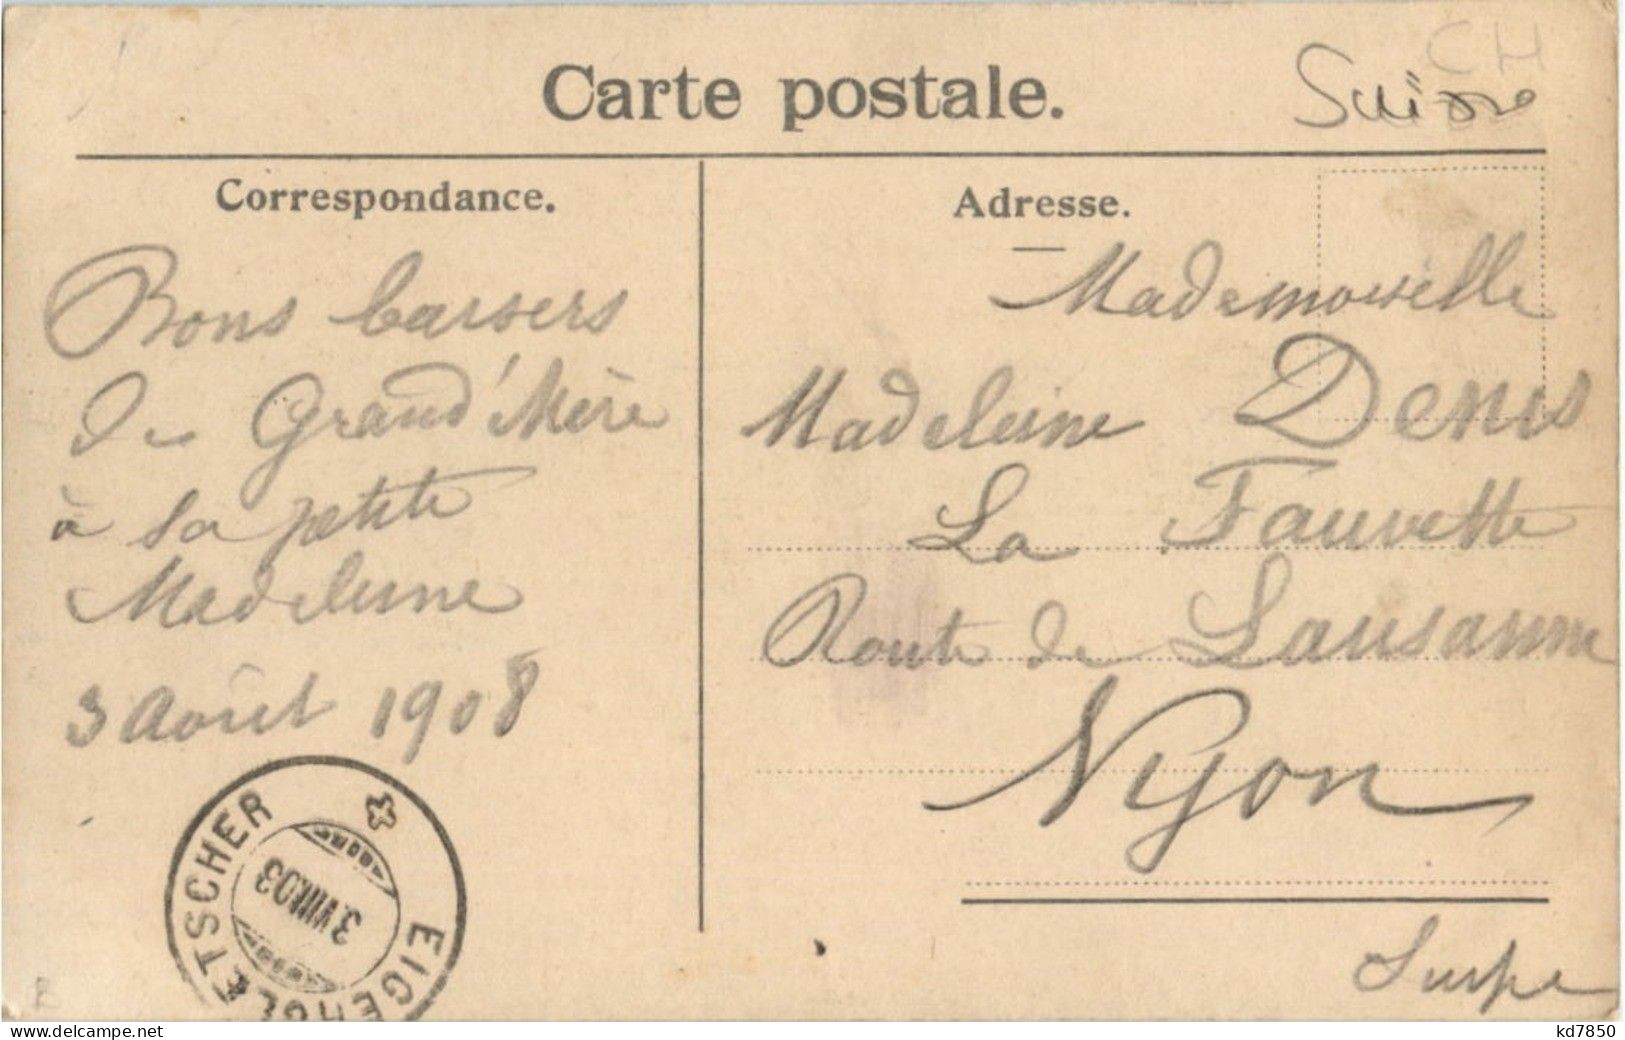 CH
Suisse
Carte postale.
Correspondance.
Bons baisers
de Grand'Mère
à sa petite
Madeleine
3 Août 1908
EIGERGLETSCHER
3.VIII.03
Adresse.
Mademoiselle
Madeleine Denis
La Fauvette
Route de Lausanne
Nyon
delcampe.net
kd7850